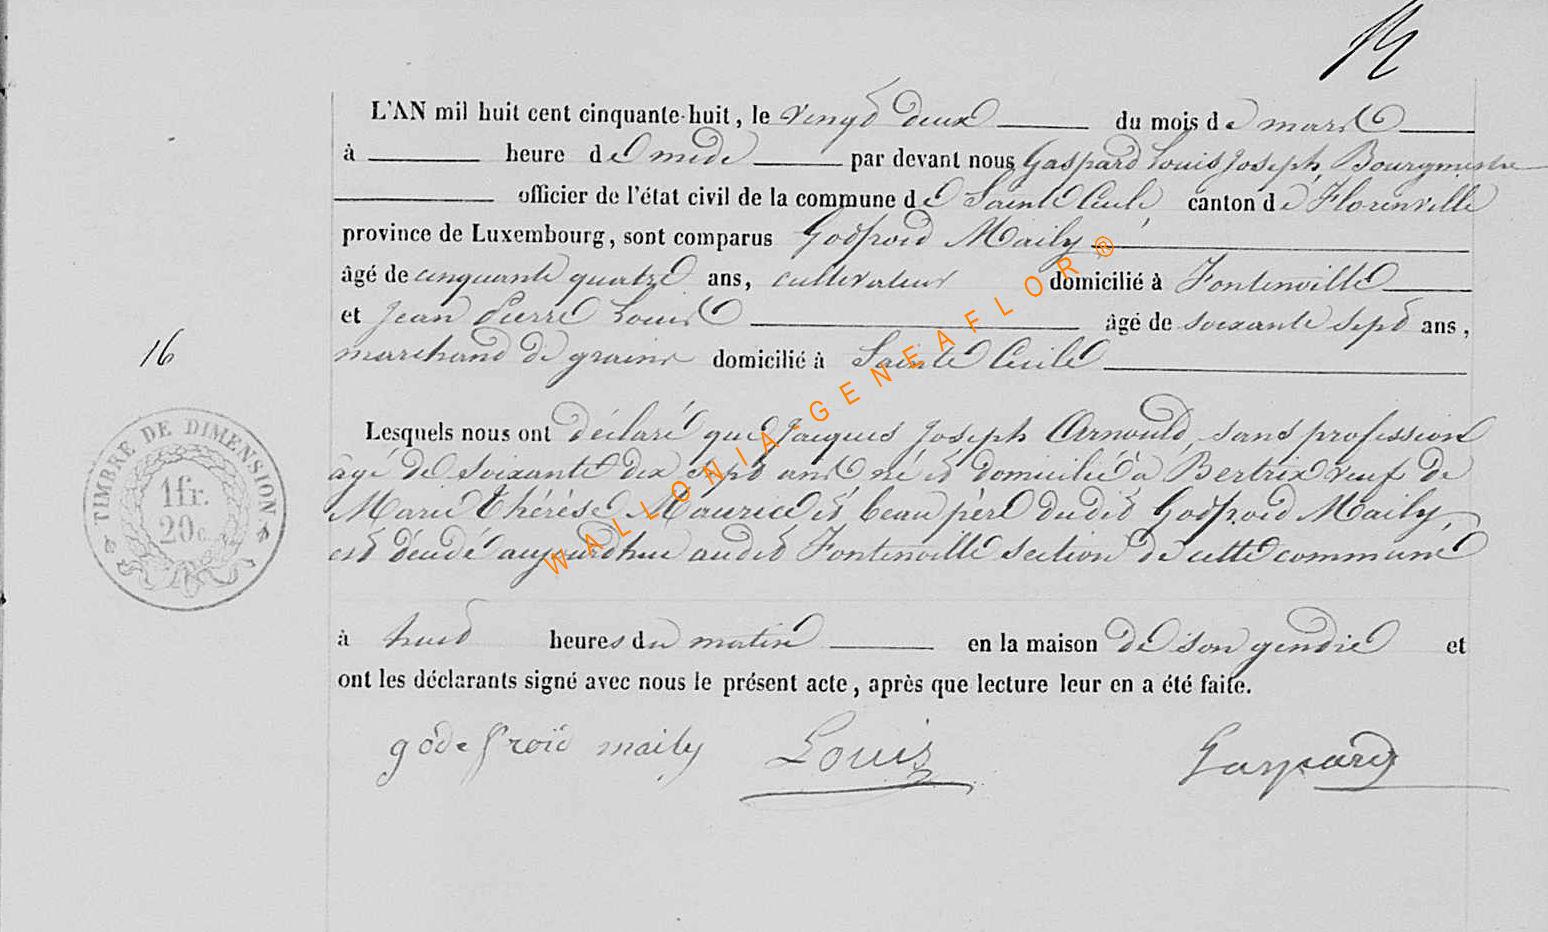 L'AN mil huit cent cinquante-huit, le vingt deux du mois de mars
à heure de midi par devant nous Gaspard Louis Joseph, Bourgmestre
officier de l'état civil de la commune de Sainte Cécile, canton de Florenville
province de Luxembourg, sont comparus Godfroid Maily
âgé de cinquante quatre ans, cultivateur domicilié à Fontenoille
et Jean Pierre Louis âgé de soixante sept ans,
16
marchand de grains domicilié à Sainte Cécile
Lesquels nous ont déclaré que Jacques Joseph Arnould, sans profession
âgé de soixante dix sept ans né et domicilié à Bertrix veuf de
Marie Thérèse Maurice et beau père dudit Godfroid Maily,
est décédé aujourdhui audit Fontenoille section de cette commune
TIMBRE DE DIMENSION
1fr.
20c.
à huit heures du matin en la maison de son gendre et
ont les déclarants signé avec nous le présent acte, après que lecture leur en a été faite.
godefroid maily Louis Gaspard
WALLONIA-GENEAFLOR®